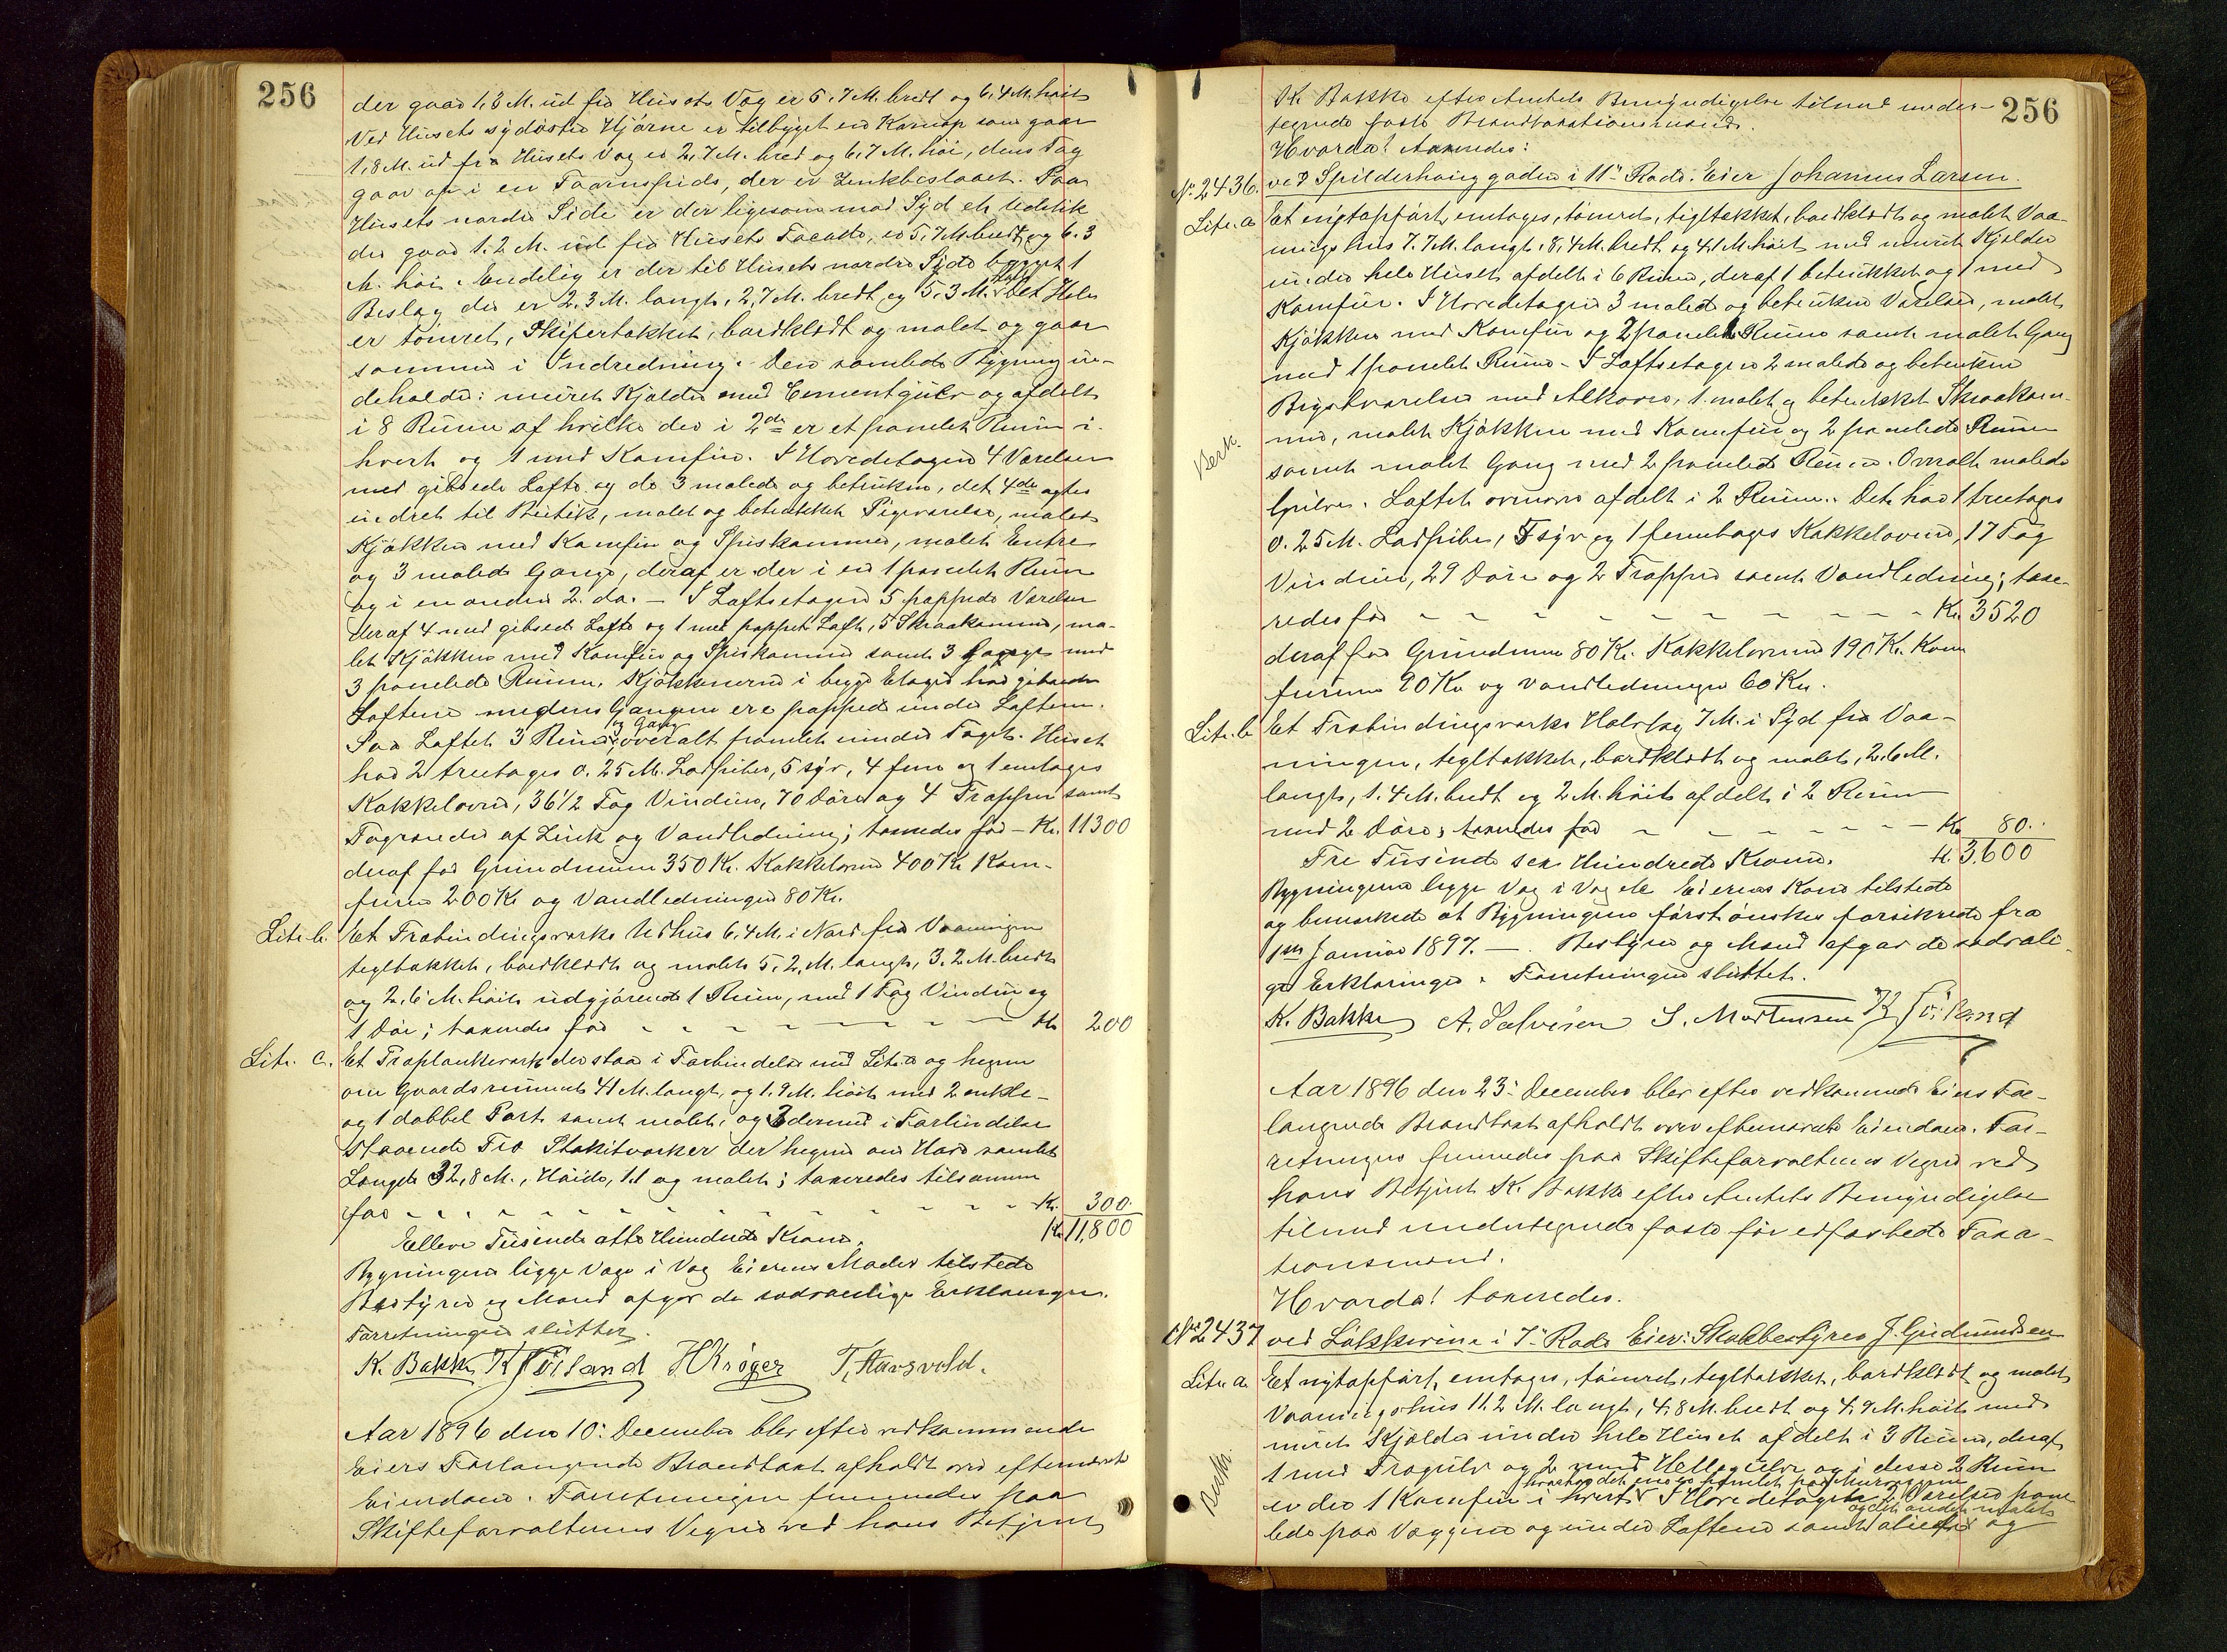 256
der gaar 1,3 M. ud fra Husets Væg er 5,7 M. bredt og 6,4 M. høit
Ved Husets sydøstre Hjørne er tilbygget en Karnap som gaar
1,8 M. ud fra Husets Væg er 2,7 M. bred og 6,7 M. høi, dens Tag
gaar op i en Taarnspids, der er Zinkbeslaaet. Paa
Husets nordre Side er der ligesom mod Syd et
der gaar 1.2 M. ud fra Husets Facade, er 5,7 M. bredt og 6.3
M. høi. Endelig er der til Husets nordre Side bygget 1
Beslag der er 2.3 M. langt, 2,7 M. bredt og 5,3 M. høit Det Hele
er tømret, Skifertækket, bordklædt og malet og gaar
sammen i Indredning. Den samlede Bygning in-
deholder: muret Kjælder med Cementgulv og afdelt
i 8 Rum af hvilke der i 2de er et panelet Rum i
hvert og 1 med Komfur. I Hovedetagen 4 Værelser
med gibsede Lofte og de 3 malede og betrukne, det 4de agtes
indret til Butik, malet og betrukket Pigeværelse, malet
Kjøkken med Komfur og Spiskammer, malet Entre
og 3 malede Gange, deraf er der i en 1 panelet Rum
og i en anden 2 do. — I Loftsetagen 5 pappede Værelser
deraf 4 med gibsede Lofte og 1 med pappet Loft, 5 Skraakammer, ma-
let Kjøkken med Komfur og Spiskammer samt 3 Gange med
3 panelede Rum. Kjøkkenerne i begge Etager har gibsede
Loftene medens Gangene ere pappede under Loftene.
Paa Loftet 3 Rum og Gang overalt panelet under Taget. Huset
har 2 treetages o. 25 M. Ladpiber, 5 syv, 4 fem og 1 enetages
Kakkelovne, 36 1/2 Fag Vinduer, 70 Døre og 4 Trapper samt
Tagrender af Zink og Vandledning; taxeredes for — Kr. 11300
deraf for Grundmuren 350 Kr. Kakkelovne 400 Kr Kom-
furene 200 Kr og Vandledningen 80 Kr.
Litr. b. Et Træbindingsværks Udhus 6,4 M. i Nord fra Vaaningen
tegltækket, bordklædt og malet 5,2 M. langt, 3.2 M. bredt
og 2,6 M. høit udgjørende 1 Rum, med 1 Fag Vindu og
1 Dør; taxeredes for — Kr 200
Litr. c. Et Træplankeværk der staar i Forbindelse med Litr. a og hegner
om Gaardsrummet 41 M. langt, og 1.9 M. høit med 2 enkle-
og 1 dobbel Port samt malet, og 2 dermed i Forbindelse
staaende Træ Stakitværker der hegner om Have samlet
Længde 32,8 M., Høide, 1.1 og malet; taxeredes tilsammen
for — Kr. 300.
Elleve Tusinde otte Hundrede Kroner. Kr 11,800
Bygningerne ligge Væg i Væg Eierens Moder tilstede
Bestyrer og Mænd afgav de sædvanlige Erklæringer.
Forretningen sluttet.
K. Bakke K Höiland H Krøger T. Aarsvold.
Aar 1896 den 10: December blev efter vedkommende
Eiers Forlangende Brandtaxt afholdt over efternævnte
Eiendom. Forretningen fremmedes paa
Skifteforvalterens Vegne ved hans Betjent
256
K. Bakke efter Amtets Bemyndigelse tilmed under-
tegnede faste Brandtaxationsmænd.
Hvorda! taxeredes:
No. 2436. ved Spilderhauggaden i 11te Rode. Eier Johannes Larsen.
Litr. a Et nytopført, enetages, tømret, tegltækket, bordklædt og malet Vaa-
ningshus 7.7 M. langt, 8,4 M. bredt og 4,1 M. høit med muret Kjælder
under hele Huset afdelt i 6 Rum, deraf 1 betrukket og 1 med
Komfur. I Hovedetagen 3 malede og betrukne Værelser, malet
Kjøkken med Komfur og 2 panelede Rum samt malet Gang
med 1 panelet Rum. I Loftsetagen 2 malede og betrukne
Bigstværelser med Alkover, 1 malet og betrukket Skraakam-
mer, malet Kjøkken med Komfur og 2 panelede Rum
Besk.
samt malet Gang med 2 panelede Rum. Overalt malede
Gulve. Loftet ovenover afdelt i 2 Rum. Det har 1 treetages
o. 25 M. Ladpiber, 5 syv og 1 femetages Kakkelovne, 17 Fag
Vinduer, 29 Døre og 2 Trapper samt Vandledning; taxe-
redes for — Kr 3520
deraf for Grundmuren 80 Kr. Kakkelovnene 190 Kr. Kom
furene 90 Kr og Vandledningen 60 Kr.
Litr. b Et Træbindingsværks Halvtag 7 M. i Syd fra Vaa-
ningen, tegltækket, bordklædt og malet, 2.6 M.
langt, 1.4 M. bredt og 2 M. høit afdelt i 2 Rum
med 2 Døre; taxeredes for — Kr 80.
Tre Tusinde sex Hundrede Kroner. Kr. 3,600
Bygningerne ligge Væg i Væg etc Eierens Kone tilstede
og bemærkede at Bygningerne først ønskes forsikrede fra
1ste Januar 1897. — . Bestyrer og Mænd afgav de sædvanli-
ge Erklæringer. Forretningen sluttet.
K. Bakke A. Salvesen S. Mortensen K Höiland
Aar 1896 den 23: December blev efter vedkommende Eiers For-
langende Brandtaxt afholdt over efternævnte Eiendom. For-
retningen fremmedes paa Skifteforvalterens Vegne ved
hans Betjent K. Bakke efter Amtets Bemyndigelse
tilmed undertegnede faste før edfæstede Taxa-
tionsmænd.
Hvorda! taxeredes.
No. 2437 ved Løkkeveien i 7de Rode Eier: Skolebestyrer J. Gudmundsen
Litr. a Et nytopført, enetages, tømret, tegltækket, bordklædt og malet
Vaaningshus 11.2 M. langt, 4,8 M. bredt og 4,9 M. høit med
muret Kjælder under hele Huset afdelt i 3 Rum, deraf
Besk.
1 med Trægulv og 2 med Hellegulv og i desse 2 Rum
er der 1 Komfur i hvert I Hovedetagen 2 Værelser pane
lede paa Væggene og under Loftene samt og